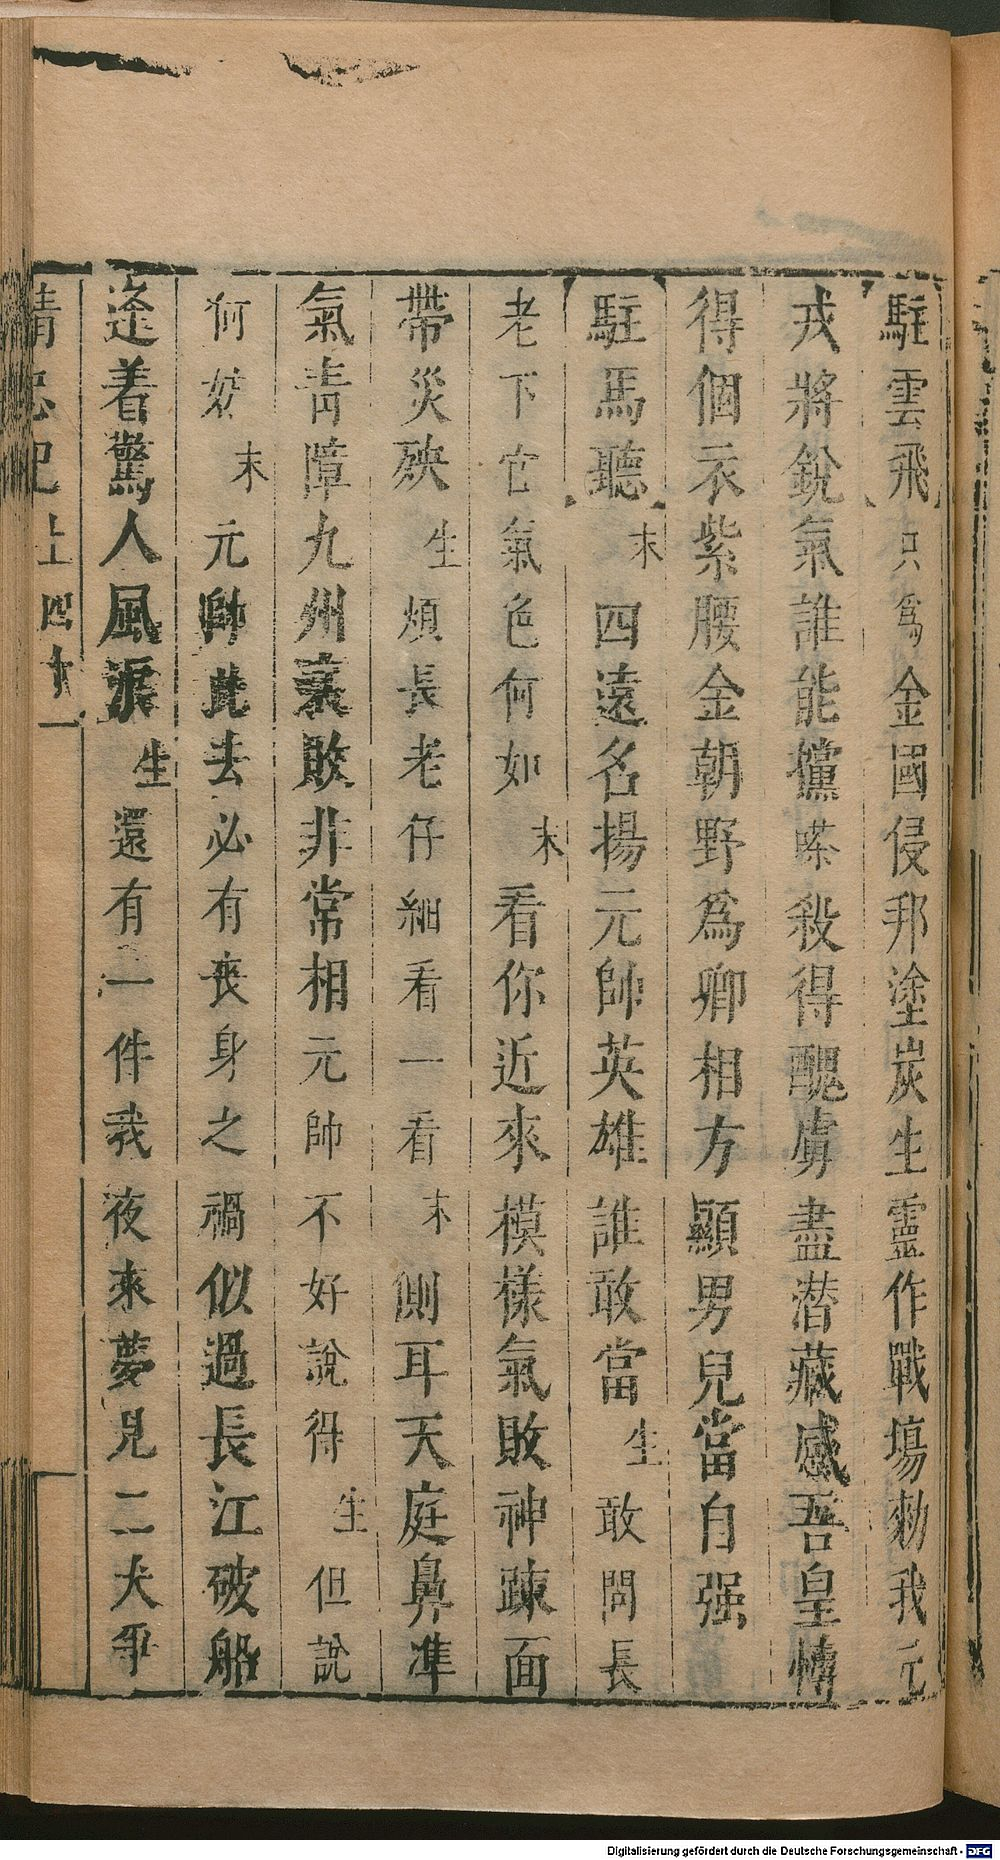 駐雲飛只為金國侵邦塗炭生靈作戰塲勑我元
戎將銳氣誰能攩㗫殺得醜虜盡潛藏感吾皇情
得個衣紫腰金朝野為卿相方顯男兒當自强
駐馬聽末四遠名揚元帥英雄誰敢當生敢問長
老下官氣色何如末看你近來模樣氣敗神踈面
帶災殃生煩長老仔細看一看末側耳天庭鼻凖
氣靑障九州衰敗非常相元帥不好說得生但說
何妨末元帥此去必有喪身之禍似過長江破船
逢着驚人風浪生還有一件我夜來夢見二犬爭
精忠記上四十一
Digitalisierung gefördert durch die Deutsche Forschungsgemeinschaft - DFG